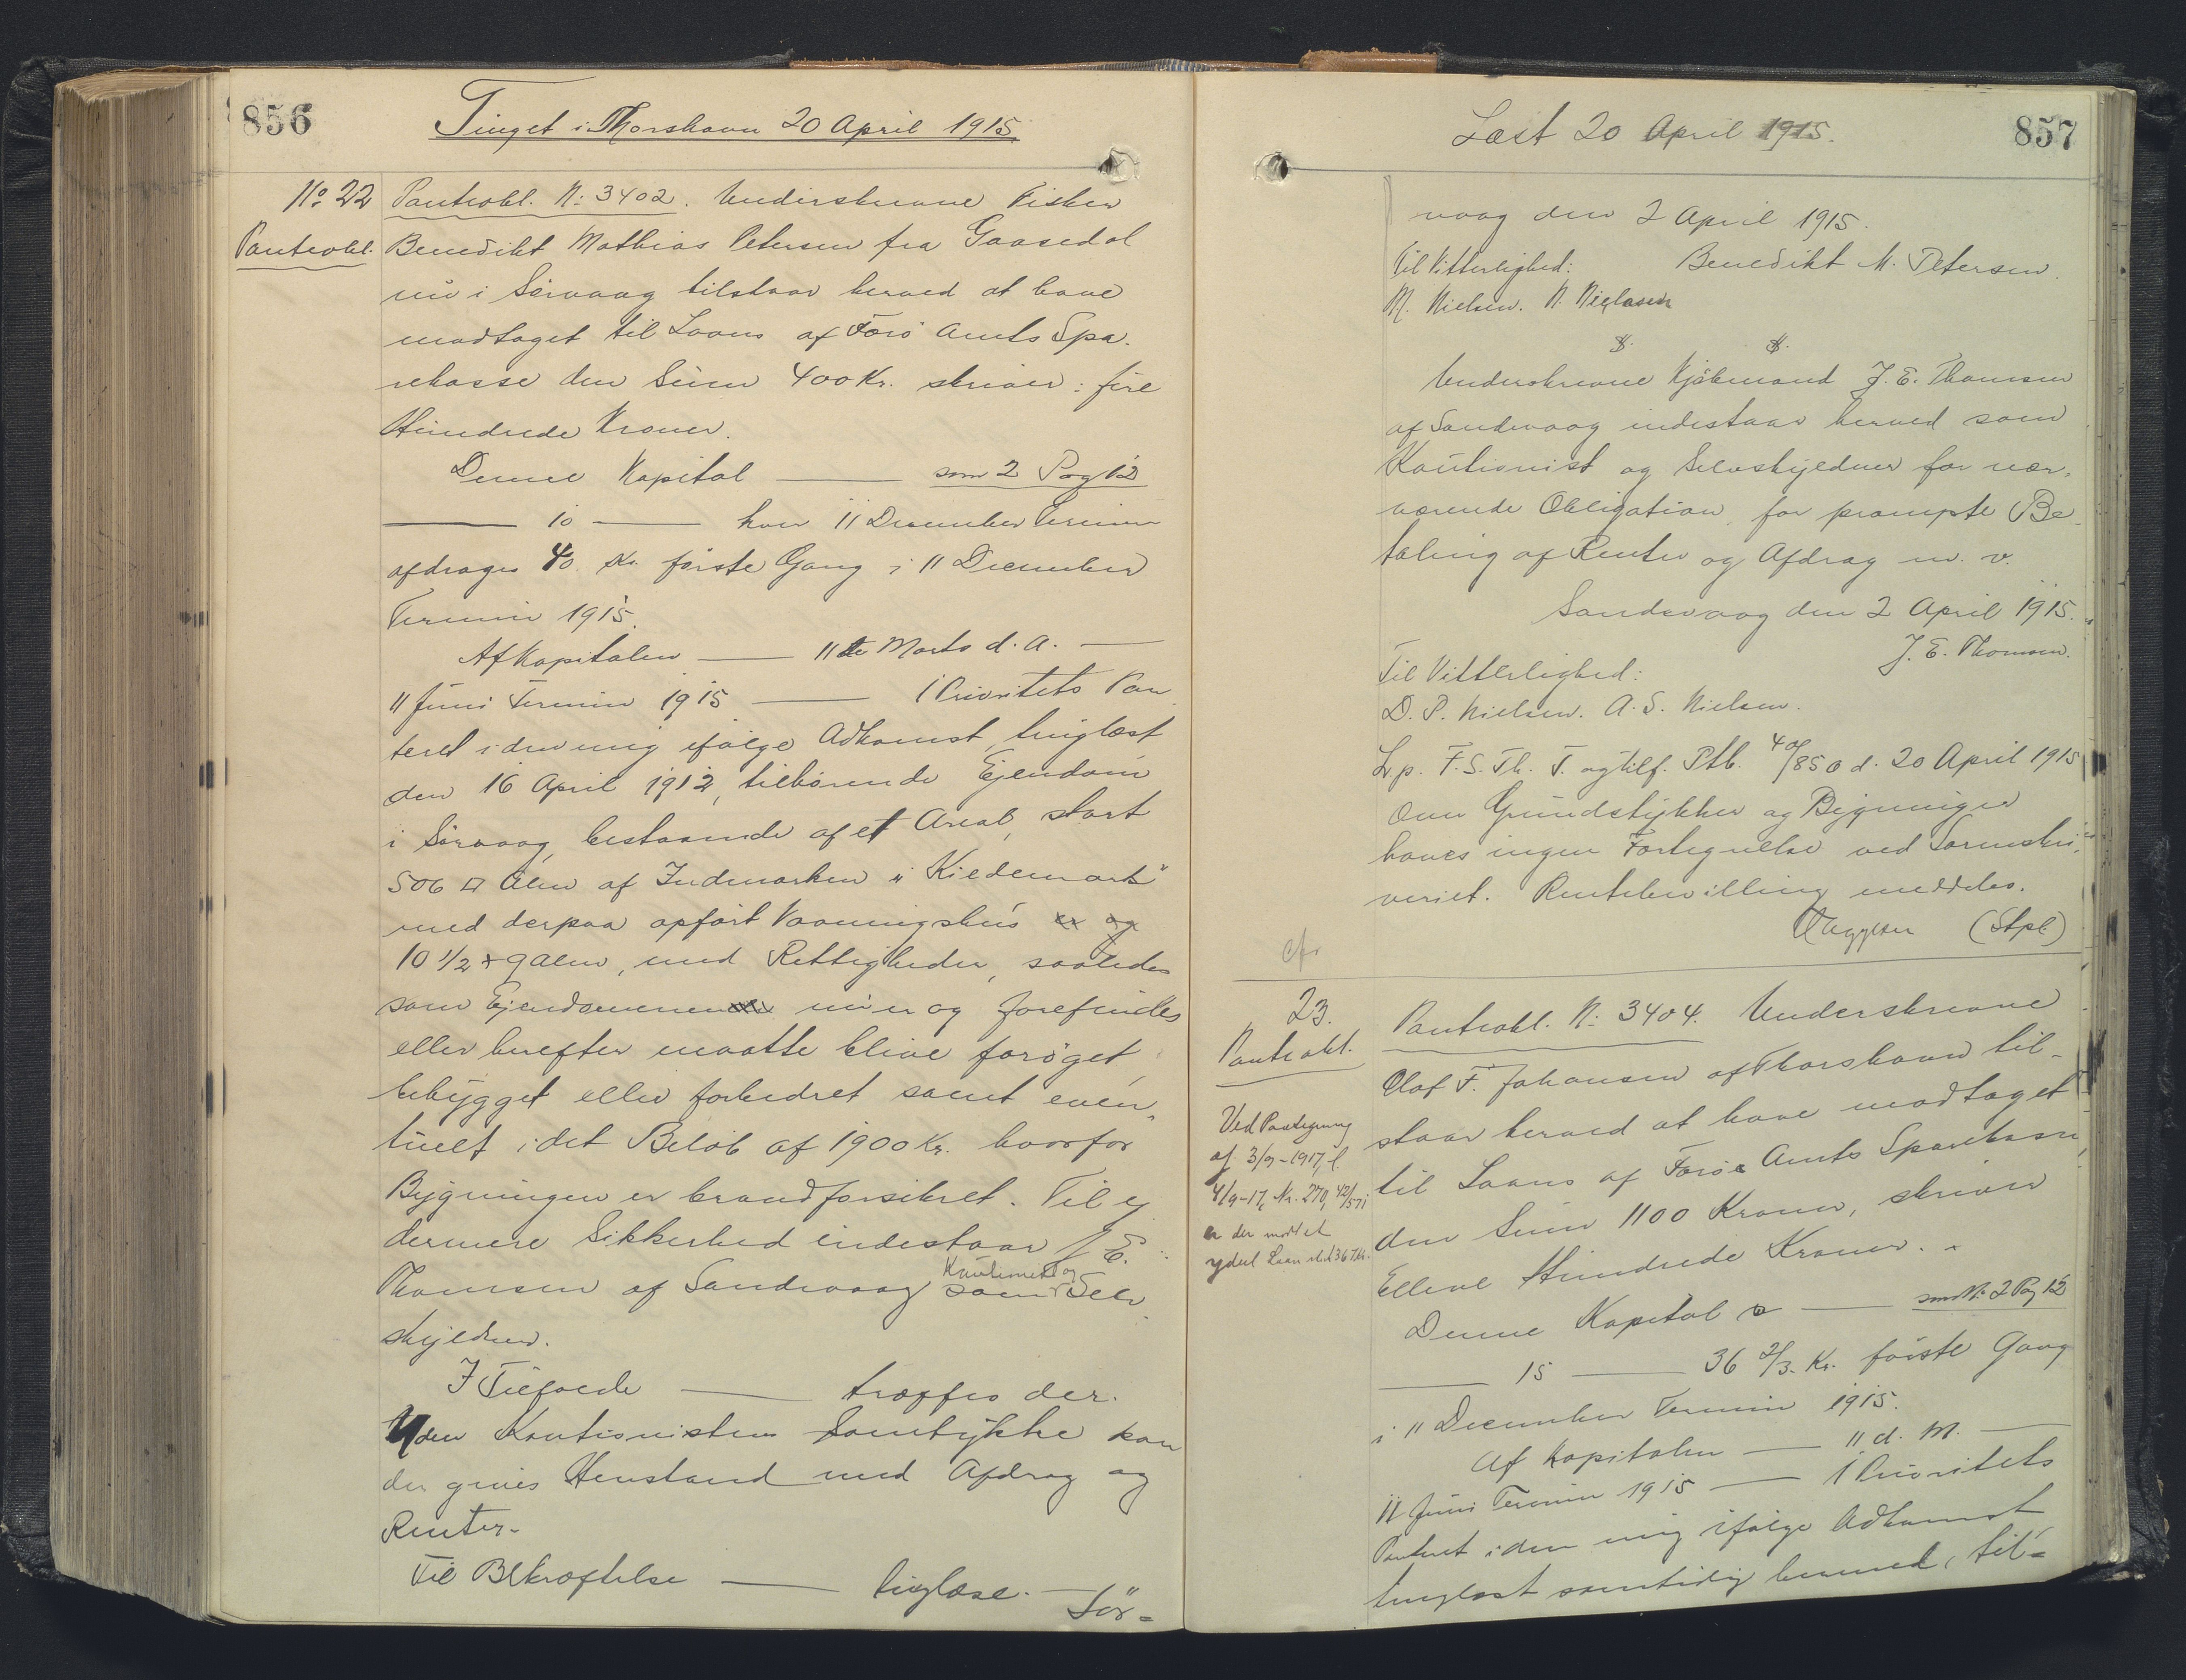 856
Tinget i Thorshavn 20 April 1915
No. 22
Panteobl.
Panteobl. N: 3402. Underskrevne Fisker
Benedikt Mathias Petersen fra Gaasedal
nú i Sörvaag tilstaar herved at have
modtaget til Laans af Færö Amts Spa-
rekasse den Súm 400 Kr. skriver: fire
Hundrede Kroner.
Denne Kapital — som 2 Pag 12
— 10 — hver 11 December Termin
afdrages 40 Kr. förste Gang i 11 December
Termin 1915.
Af Kapitalen — 11te Marts d. A. —
11 Júni Termin 1915 — 1 Prioritets Pan
teret i den mig ifölge Adkomst, tinglæst
den 16 April 1912, tilhörende Ejendom
i Sörvaag, bestaaende af et Areal, stort
506 □ Alen af Indmarken "Kiedemark"
med derpaa opfört Vaaningshús
10 1/2 × 9 Alen, med Rettigheder, saaledes
som Ejendommen nú er og forefindes
eller herefter maatte blive foröget,
bebygget eller forbedret samt even-
túelt i det Belöb af 1900 Kr. hvorfor
Bygningen er brandforsikret. Til y
dermere Sikkerhed indestaar J. E.
Thomsen af Sandevaag som Kautionist og Selv
skyldner.
I Tilfælde — træffes der.
Uden Kautionistens Samtykke kan
der gives Henstand med Afdrag og
Renter.
Til Bekræftelse — tinglæse. — Sör=
Læst 20 April 1915.
857
vaag den 2 April 1915.
Til Vitterlighed: Benedikt M. Petersen.
M. Nielsen. N. Niclasen
Underskrevne Kjöbmand J. E. Thomsen
af Sandevaag indestaar herved som
Kautionist og Selvskyldner for nær-
værende Obligation, for prompte Be-
taling af Renter og Afdrag m. v.
Sandevaag den 2 April 1915.
J. E. Thomsen.
Til Vitterlighed:
D. P. Nielsen. A. S. Nielsen.
L. p. F. S. Th. T. og tilf. Ptb. 40/850 d. 20 April 1915
Over Grúndstykker og Bygninger
haves ingen Fortegnelse ved Sorenskri-
veriet. Rentebevilling meddeles.
(Stpl)
cfr
23.
Panteobl.
Ved Paategning
af 3/9-1917, l.
4/9-17, Nr. 270, 42/571
er der
ydet Laan
Panteobl. N: 3404. Underskrevne
Olaf F. Johansen af Thorshavn til-
staar herved at have modtaget
til Laans af Færö Amts Sparekasse
den Súm 1100 Kroner, skriver
Elleve Hundrede Kroner.
Denne Kapital — som N: 2 Pag 12
— 15 — 36 2/3 Kr. förste Gang
i 11 December Termin 1915.
Af Kapitalen — 11 d. M. —
11 Júni Termin 1915 — 1 Prioritets
Panteret i den mig ifölge Adkomst
tinglæst samtidig hermed, til=